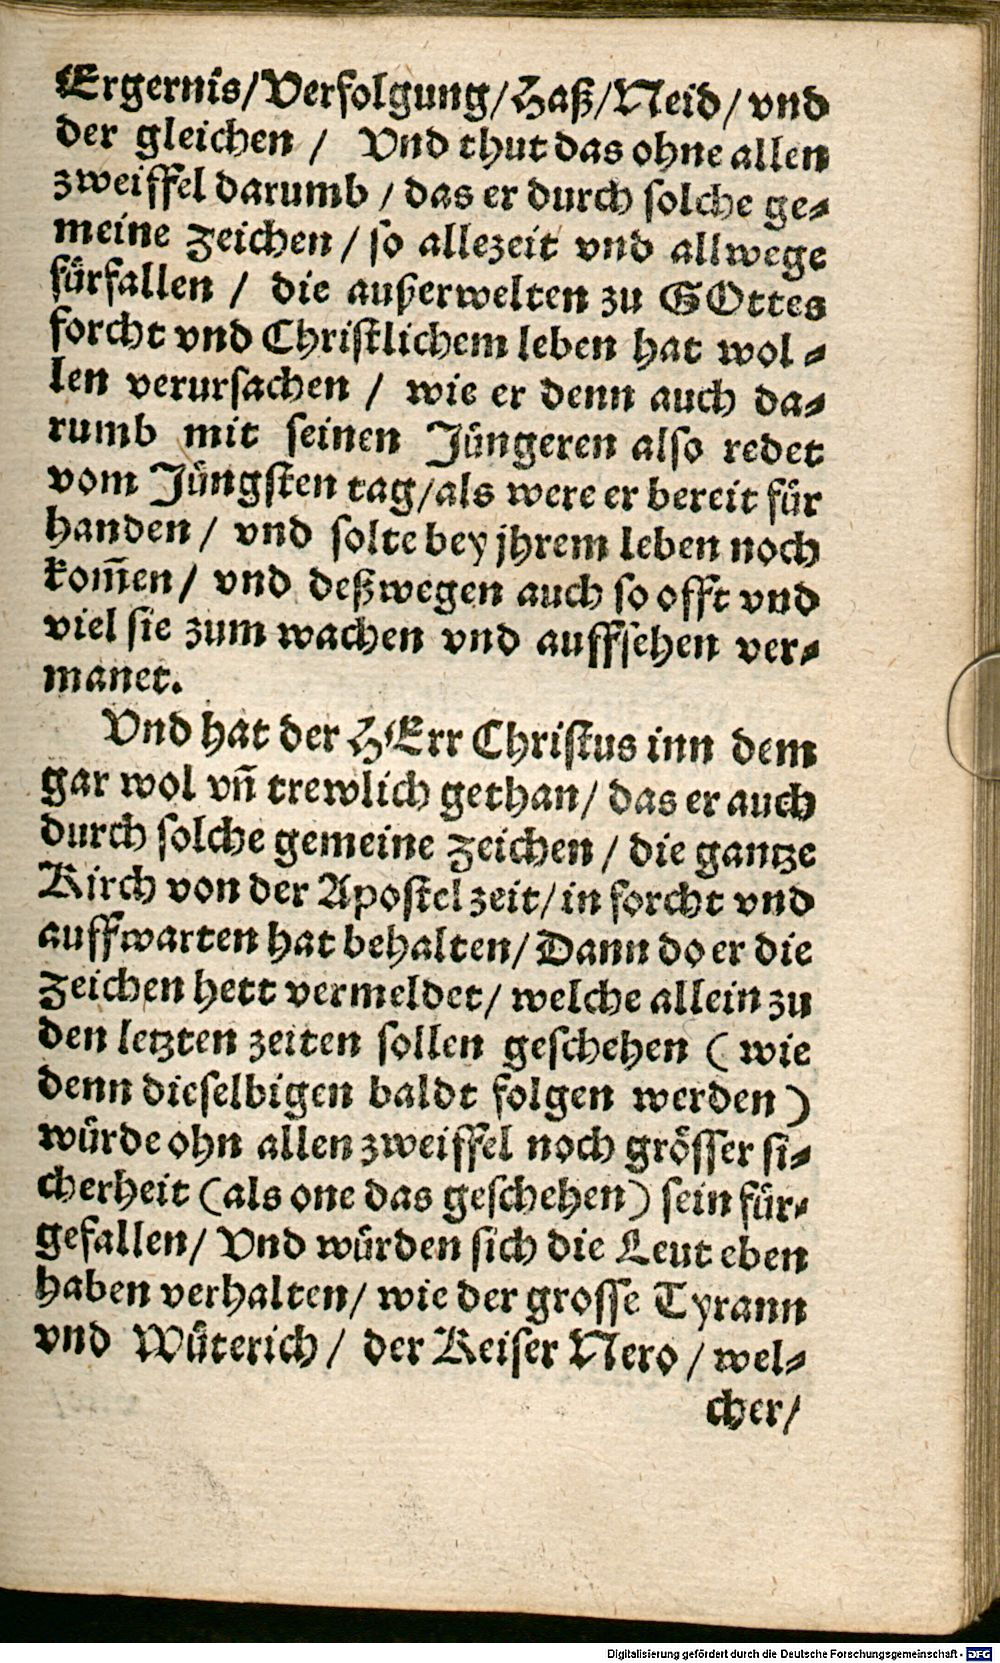 Ergernis/Verfolgung/Haß/Neid/vnd
der gleichen / Vnd thut das ohne allen
zweiffel darumb / das er durch solche ge-
meine Zeichen / so allezeit vnd allwege
fürfallen / die außerwelten zu GOttes
forcht vnd Christlichem leben hat wol-
len verursachen / wie er denn auch da-
rumb mit seinen Jüngeren also redet
vom Jüngsten tag/als were er bereit für
handen / vnd solte bey jhrem leben noch
kom̄en / vnd deßwegen auch so offt vnd
viel sie zum wachen vnd auffsehen ver-
manet.
Vnd hat der HErr Christus inn dem
gar wol vn̄ trewlich gethan/ das er auch
durch solche gemeine Zeichen / die gantze
Kirch von der Apostel zeit/ in forcht vnd
auffwarten hat behalten/ Dann do er die
Zeichen hett vermeldet/ welche allein zu
den letzten zeiten sollen geschehen ( wie
denn dieselbigen baldt folgen werden )
würde ohn allen zweiffel noch grösser si-
cherheit (als one das geschehen) sein für-
gefallen/ Vnd würden sich die Leut eben
haben verhalten/ wie der grosse Tyrann
vnd Wüterich / der Keiser Nero / wel-
cher/
Digitalisierung gefördert durch die Deutsche Forschungsgemeinschaft - DFG